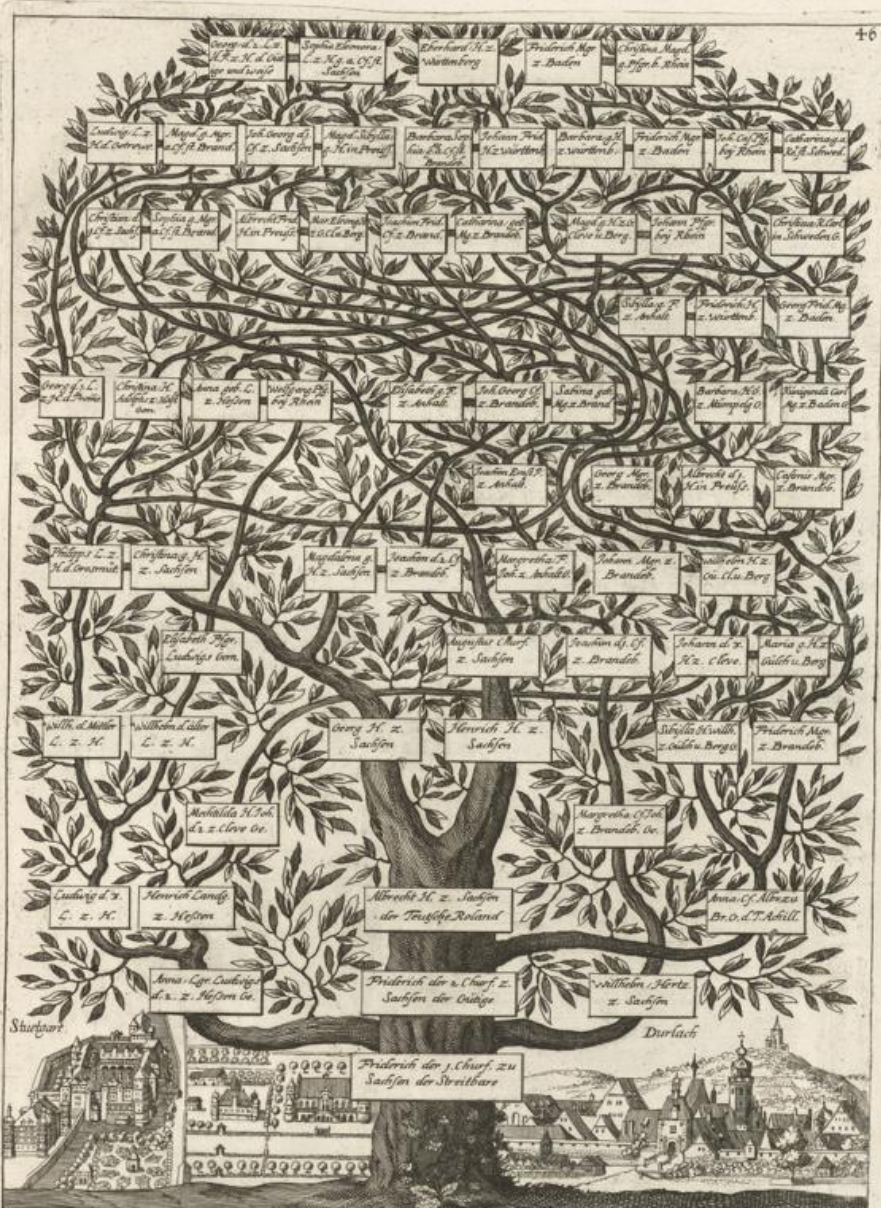 46
Georg d. 2. L. z.
H. F. z. H. d. Güt
iger und weise
Sophia Eleonora
L. z. H. g. a. Cf. st.
Sachsen
Eberhard H. z.
Würtenberg
Friderich Mgr
z. Baden
Christina Magd.
g. Pfgr. b. Rhein
Ludwig L. z.
H. d. Getreue
Magd. g. Mgr.
a. Cf. st. Brand.
Joh. Georg d. 1.
Cf. z. Sachsen
Magd. Sibylla
g. H. in Preuss
Barbara Sop
hia
Brandeb.
Johann Frid.
H. z. Württenb.
Barbara g. H.
z. württenb.
Friderich Mgr
z. Baden
Joh. Cas. Pfg.
bey Rhein
Catharina g. a
Schwed.
Christian d.
1. Cf. z. Sachs.
Sophia g. Mgr
a. Cf. st. Brand
Albrecht Frid.
H. in Preuss
Mar. Eleong. H.
z. G. Cl. u. Berg
Joachim Frid.
Cf. z. Brand.
Catharina geb.
Mg. z. Brandeb.
Magd. g. H. z. G
Cleve u. Berg
Johann Pfgr.
bey Rhein
Christina K. Carl
in Schweden G.
Sibylla g. F.
z. Anhalt
Friderich H.
z. Württenb.
Georg Frid. Mg.
z. Baden
Georg d. 1. L.
z. H. d.
Christina H.
Adolphs z. Holst
Gem
Anna geb. L.
z. Hessen
Wolfgang Pfg
bey Rhein
Elisabeth g. F.
z. Anhalt
Joh. Georg Cf.
z. Brandeb.
Sabina geb.
Mg. z. Brand
Barbara H. G.
z. Mümpelg G.
Künigunda Carl
Mg. z. Baden G
Joachim Ernst F.
z. Anhalt
Georg Mgr.
z. Brandeb.
Albrecht d. 1.
H. in Preuss.
Casimir Mgr.
z. Brandeb.
Philipps L. z.
H. d. Grosmüt
Christina g. H.
z. Sachsen
Magdalena g.
H. z. Sachsen
Joachim d. 2. Cf
z. Brandeb.
Margretha F.
Joh. z. Anhalt G.
Johann Mgr. z.
Brandeb.
Wilhelm H. z.
Gü. Cl. u. Berg
Elisabeth Pfgr.
Ludwigs Gem.
Augustus Churf.
z. Sachsen
Joachim d 1. Cf.
z. Brandeb.
Johann d. 3.
H z. Cleve.
Maria g. H. z
Gülch u. Berg
Willh. d. Mittler
L. z. H.
Willhelm d. älter
L. z. H.
Georg H. z.
Sachsen
Henrich H. z.
Sachsen
Sibylla H. willh.
z. Gülch u. Berg G
Friderich Mgr.
z. Brandeb.
Mechtilda H. Joh.
d. 2. z. Cleve Ge.
Margretha Cf. Joh.
z. Brandeb. Ge.
Ludwig d. 3.
L. z. H.
Henrich Landg.
z. Hessen
Albrecht H. z. Sachsen
der Teutsche Roland
Anna, Cf. Albr. zu
Br. G. d. T. Achill.
Anna, Lgr. Ludwigs
d. 2. z. Hessen Ge.
Friderich der 2 Churf. z.
Sachsen der Gütige
Willhelm, Hertz.
z. Sachsen
Stutgart
Durlach
Friderich der 1. Churf. zu
Sachsen der Streitbare